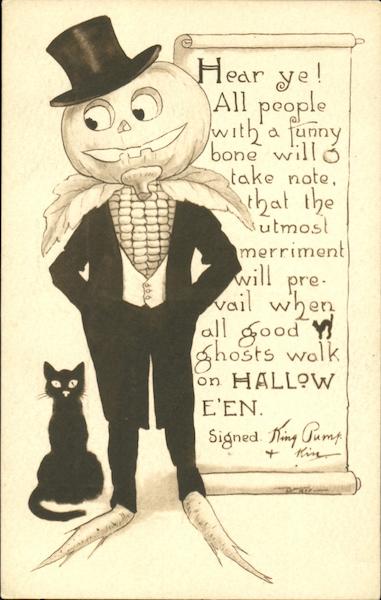 Hear ye!
All people
with a funny
bone will
take note,
that the
utmost
merriment
will pre-
vail when
all good
ghosts walk
on HALLOW
E'EN.
Signed. King Pump
+ Kin